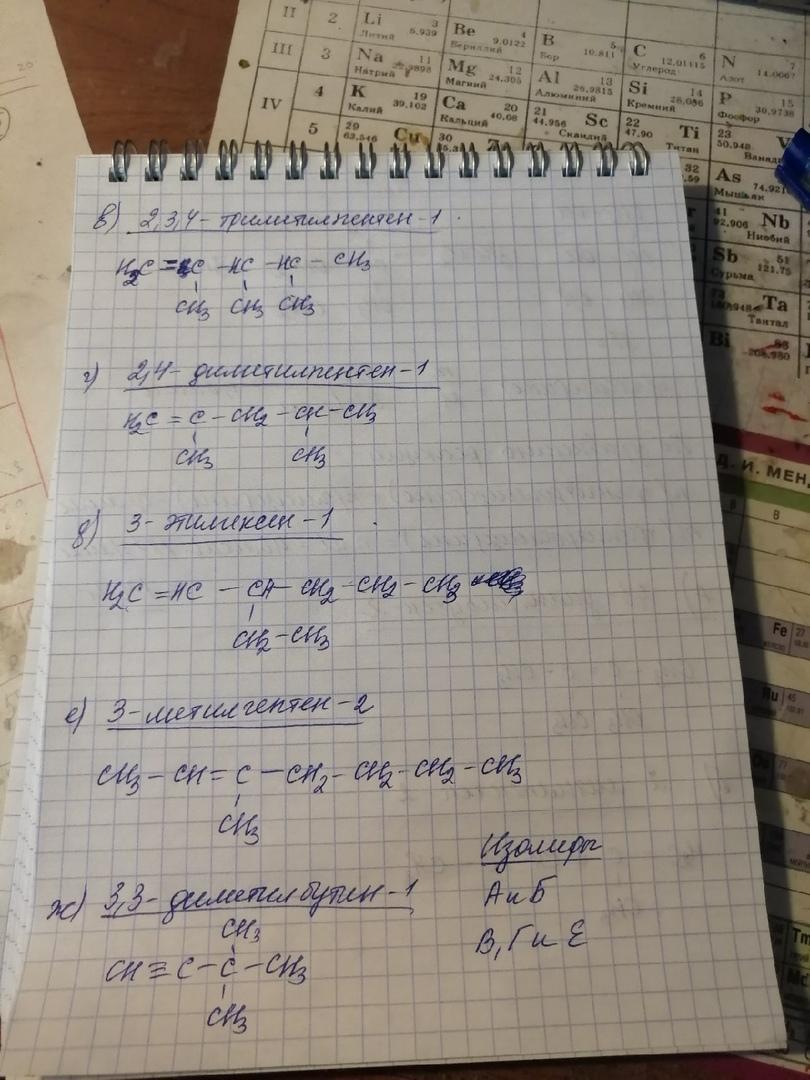 II 2 Li 3 Литий 6.939 Be 4 Бериллий 9.0122 B 5 Бор 10.811 C 6 Углерод 12.01115 N 7 Азот 14.0067
III 3 Na 11 Натрий 22.9898 Mg 12 Магний 24.305 Al 13 Алюминий 26.9815 Si 14 Кремний 28.086 P 15 Фосфор 30.9738
IV 4 K 19 Калий 39.102 Ca 20 Кальций 40.08 21 Sc 44.956 Скандий 22 Ti 47.90 Титан 23 V 50.948
5 29 Cu 63.546 30 As Мышьяк 74.921
41 Nb 92.906 Ниобий
Sb 51 Сурьма 121.75
Ta Тантал
Bi 83 208.980
Д. И. МЕН
8 8
Fe 27
Ru 45
Tm
в) 2,3,4-триметилпентен-1
H₂C = C - HC - HC - CH₃
CH₃ CH₃ CH₃
г) 2,4-диметилпентен-1
H₂C = C - CH₂ - CH - CH₃
CH₃ CH₃
д) 3-этилгексен-1
H₂C = HC - CH - CH₂ - CH₂ - CH₃
CH₂ - CH₃
е) 3-метилгептен-2
CH₃ - CH = C - CH₂ - CH₂ - CH₂ - CH₃
CH₃
ж) 3,3-диметилбутин-1
CH₃
CH ≡ C - C - CH₃
CH₃
Изомеры
А и Б
В, Г и Е